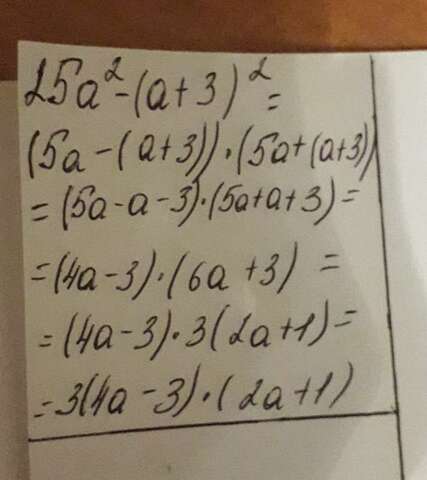 25a²-(a+3)²=
(5a-(a+3))·(5a+(a+3))
=(5a-a-3)·(5a+a+3)=
=(4a-3)·(6a+3)=
=(4a-3)·3(2a+1)=
=3(4a-3)·(2a+1)